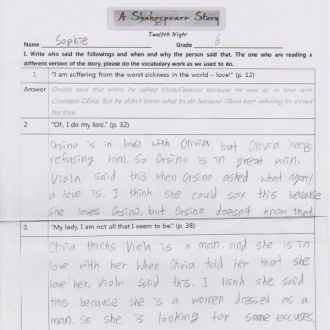 A Shakespeare Story
Twelfth Night
Name Sophie Grade 6
I. Write who said the followings and when and why the person said that. The one who are reading a
different version of the story, please do the vocabulary work as we used to do.
1 "I am suffering from the worst sickness in the world – love!" (p. 12)
Answer Orsino said this when he called Viola(Cesario) because he was as in love with
Countess Olivia. But he didn't know what to do because Olivia kept refusing to accept
his love.
2 "Oh, I do my lord." (p. 32)
Orsino is in love with Olivia, but Olivia keeps
refusing him. So Orsino is in great pain.
Viola said this when Orsino asked what agony
a love is. I think she could say this because
she loves Orsino, but Orsino doesn't know that.
3. "My lady, I am not all that I seem to be." (p. 38)
Olivia thinks Viola is a man, and she is in
love with her. When Olivia told her that she
love her, Viola said this. I think she said
this because she is a women dressed as a
man, so she is looking for some excuses.